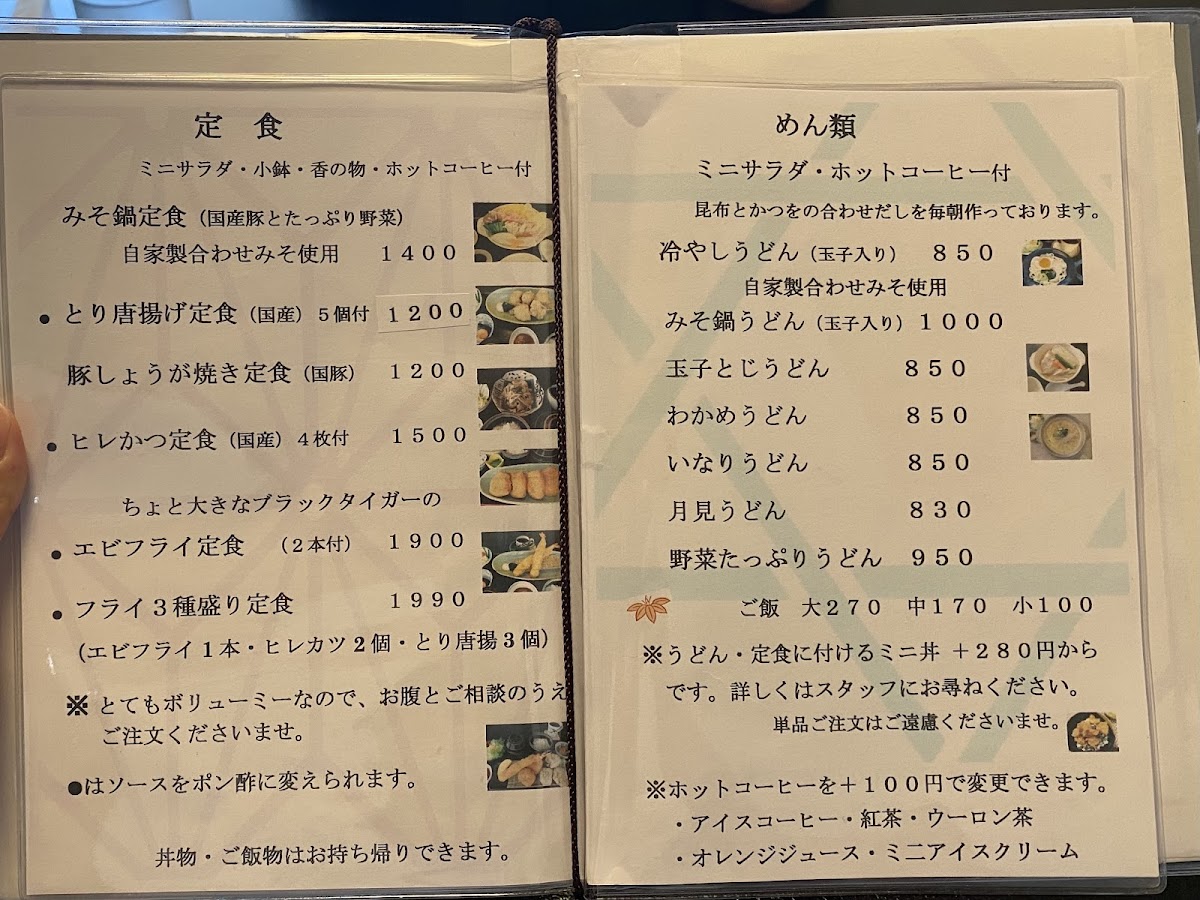 定 食
ミニサラダ・小鉢・香の物・ホットコーヒー付
みそ鍋定食（国産豚とたっぷり野菜）
自家製合わせみそ使用 １４００
● とり唐揚げ定食（国産）５個付 １２００
豚しょうが焼き定食（国豚） １２００
● ヒレかつ定食（国産）４枚付 １５００
ちょと大きなブラックタイガーの
● エビフライ定食 （２本付） １９００
● フライ３種盛り定食 １９９０
（エビフライ１本・ヒレカツ２個・とり唐揚３個）
※ とてもボリューミーなので、お腹とご相談のうえ
ご注文くださいませ。
●はソースをポン酢に変えられます。
丼物・ご飯物はお持ち帰りできます。
めん類
ミニサラダ・ホットコーヒー付
昆布とかつをの合わせだしを毎朝作っております。
冷やしうどん（玉子入り） ８５０
自家製合わせみそ使用
みそ鍋うどん（玉子入り）１０００
玉子とじうどん ８５０
わかめうどん ８５０
いなりうどん ８５０
月見うどん ８３０
野菜たっぷりうどん ９５０
ご飯 大２７０ 中１７０ 小１００
※うどん・定食に付けるミニ丼 ＋２８０円から
です。詳しくはスタッフにお尋ねください。
単品ご注文はご遠慮くださいませ。
※ホットコーヒーを＋１００円で変更できます。
・アイスコーヒー・紅茶・ウーロン茶
・オレンジジュース・ミニアイスクリーム